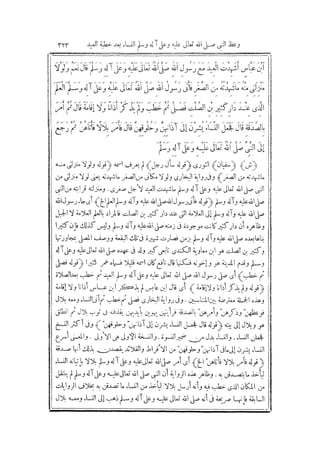 وعظ النبى صلى الله تعالى عليه وعلى آله وسلم النساء بعد خطبة العيد ٣٢٣
ابْنَ عَبَّاسٍ أَشَهِدْتَ الْعِيدَ مَعَ رَسُولِ اللهِ صَلَّى اللهُ تَعَالَى عَلَيْهِ وَعَلَى آلِهِ وَسَلَّمَ قَالَ نَعَمْ وَلَوْلَا
مَنْزِلَتِى مِنْهُ مَا شَهِدْتُهُ مِنَ الصِّغَرِ فَأَتَى رَسُولُ اللهِ صَلَّى اللهُ تَعَالَى عَلَيْهِ وَعَلَى آلِهِ وَسَلَّمَ الْعَلَمَ
الَّذِى عِنْدَ دَارِ كَثِيرِ بْنِ الصَّلْتِ فَصَلَّى ثُمَّ خَطَبَ وَلَمْ يَذْكُرْ أَذَانًا وَلَا إِقَامَةً قَالَ ثُمَّ أَمَرَ
بِالصَّدَقَةِ قَالَ فَجَعَلَ النِّسَاءُ يُشِرْنَ إِلَى آذَانِهِنَّ وَحُلُوقِهِنَّ قَالَ فَأَمَرَ بِلَالًا فَأَتَاهُنَّ ثُمَّ رَجَعَ
إِلَى النَّبِىِّ صَلَّى اللهُ تَعَالَى عَلَيْهِ وَعَلَى آلِهِ وَسَلَّمَ
(ش) (سفيان) الثورى (قوله سأل رجل) لم يعرف اسمه (قوله ولولا منزلتى منه
ما شهدته من الصغر) وفى رواية البخارى ولولا مكانى من الصغر ما شهدته يعنى لولا منزلتى من
النبى صلى الله تعالى عليه وعلى آله وسلم ما شهدت العيد لأجل صغرى. ومنزلته قرابته من النبى
صلى الله عليه وآله وسلم (قوله فأتى رسول الله صلى الله عليه وآله وسلم العلم الخ) أى جاء رسول الله
صلى الله عليه وآله وسلم إلى العلامة التى عند دار كثير بن الصلت فالمراد بالعلم العلامة لا الجبل
وظاهره أن دار كثير كانت موجودة فى زمنه صلى الله عليه وآله وسلم وليس كذلك فإن كثيرا
بناها بعده صلى الله عليه وآله وسلم بزمن فصارت شهيرة فى تلك البقعة ووصف المصلى بمجاورتها
وكثير بن الصلت هو ابن معاوية الكندى تابعى كبير ولد فى عهده صلى الله تعالى عليه وعلى آله
وسلم وقدم المدينة هو وإخوته فسكنها قال نافع كان اسمه قليلا فسماه عمر كثيرا (قوله فصلى
ثم خطب) أى صلى رسول الله صلى الله تعالى عليه وعلى آله وسلم العيد ثم خطب بعد الصلاة
(قوله ولم يذكر أذانا ولا إقامة) أى قال ابن عابس لم يذكر ابن عباس أذانا ولا إقامة
وهذه الجملة معترضة بين المتناسبين. وفى رواية البخارى فصلى ثم خطب ثم أتى النساء ومعه بلال
فوعظهن وذكرهن وأمرهن بالصدقة فرأيتهن يهوين بأيديهن يقذفنه فى ثوب بلال ثم انطلق
هو وبلال إلى بيته (قوله قال فجعل النساء يشرن إلى آذانهن وحلوقهن) وفى أكثر النسخ
فجعلن النساء. والنساء بدل من ضمير النسوة. والنسخة الأولى هى الأولى. والمعنى أسرع
النساء يشرن إلى ما فى آذانهن وحلوقهن من الأقراط والقلائد يقصدن بذلك أنها صدقة
(قوله فأمر بلالا فأتاهن الخ) أى أمر صلى الله تعالى عليه وعلى آله وسلم بلالا بإتيانه النساء
ليأخذ ما يتصدقن به. وظاهر هذه الرواية أن النبى صلى الله تعالى عليه وعلى آله وسلم لم ينتقل
من المكان الذى خطب فيه وأنه أرسل بلالا ليأخذ من النساء ما تصدقن به بخلاف الروايات
السابقة فإنها صريحة فى أنه صلى الله تعالى عليه وعلى آله وسلم ذهب إلى النساء ومعه بلال